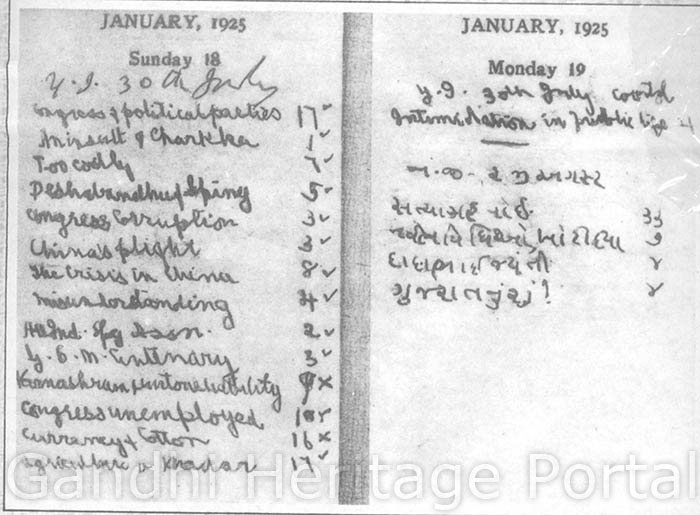 JANUARY, 1925
Sunday 18
Y. I. 30th July
Congress & political parties 17 ✓
Insult & Charkha 1 ✓
Too costly 7 ✓
Deshabandhu & Spinning 5 ✓
Congress Corruption 3 ✓
China's plight 3 ✓
The Crisis in China 8 ✓
misunderstanding 4 ✓
All Ind. Spg Assn. 2 ✓
Y. C. M. Centenary 3 ✓
Varnashram & untouchability ×
Congress unemployed ✓
Currency & Cotton 16 ×
agriculture Khadar 17 ✓
JANUARY, 1925
Monday 19
Y. I. 30th July contd
Intimidation in public life
ન. જી. ૨ જી ઓગસ્ટ
સત્યાગ્રહ
દાદાભાઈ જયંતી ૪
ગુજરાતનું શું? ૪
Gandhi Heritage Portal